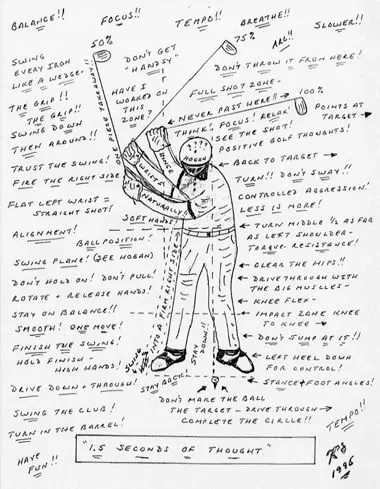 BALANCE!! FOCUS!! TEMPO!! BREATHE!! SLOWER!!
50%
75%
ARC!!
SWING
EVERY IRON
LIKE A WEDGE-
DON'T GET
"HANDSY"
DON'T THROW IT FROM HERE!
ONE PIECE TAKEAWAY!!
HAVE I
WORKED ON
THIS
ZONE?
FULL SHOT ZONE-
100%
POINTS AT
TARGET
NEVER PAST HERE!!
THE GRIP!!
THE GRIP!!
SWING DOWN
THEN AROUND!!
THINK! FOCUS! RELAX!
SEE THE SHOT!
POSITIVE GOLF THOUGHTS!
TRUST THE SWING!
FIRE THE RIGHT SIDE
HINGE
WRISTS
NATURALLY!
????
HOGAN
BACK TO TARGET
TURN!! DON'T SWAY!!
CONTROLLED AGGRESSION!
LESS IS MORE!
FLAT LEFT WRIST =
STRAIGHT SHOT!
SOFT HANDS
ALIGNMENT!
BALL POSITION
TURN MIDDLE 1/2 AS FAR
AS LEFT SHOULDER-
TORQUE-RESISTANCE!
SWING PLANE! (SEE HOGAN)
CLEAR THE HIPS!!
DON'T HOLD ON! DON'T PULL!
ROTATE + RELEASE HANDS!
DRIVE THROUGH WITH
THE BIG MUSCLES-
KNEE FLEX-
STAY ON BALANCE!!
IMPACT ZONE KNEE
TO KNEE
SMOOTH! ONE MOVE!
DON'T JUMP AT IT!!
FINISH THE SWING
HOLD FINISH-
HIGH HANDS!
INTO A FIRM RIGHT SIDE
STAY
DOWN!!
LEFT HEEL DOWN
FOR CONTROL!
DRIVE DOWN + THROUGH!
STAY BACK!
STANCE + FOOT ANGLES!
SWING THE CLUB!
TURN IN THE BARREL!
DON'T MAKE THE BALL
THE TARGET - DRIVE THROUGH
COMPLETE THE CIRCLE!!
TEMPO!!
"1.5 SECONDS OF THOUGHT"
HAVE
FUN!!
1996